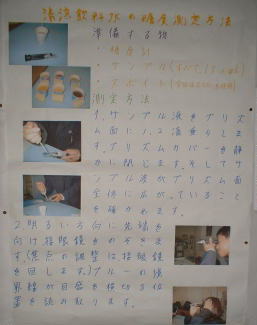 清涼飲料水の糖度測定方法
準備する物
・糖度計
・サンプル(すべて
・スポイト(
測定方法
1.サンプル液をプリズ
ム面に1、2滴垂らしま
す。プリズムカバーを静
かに閉じます。そしてサ
ンプル液がプリズム面
全体に広がっていること
を確かめます。
2.明るい方向に先端を
向け接眼鏡をのぞきま
す。(焦点の調整は接眼鏡
を回します。)ブルーの境
界線が目盛を横切る位
置を読み取ります。